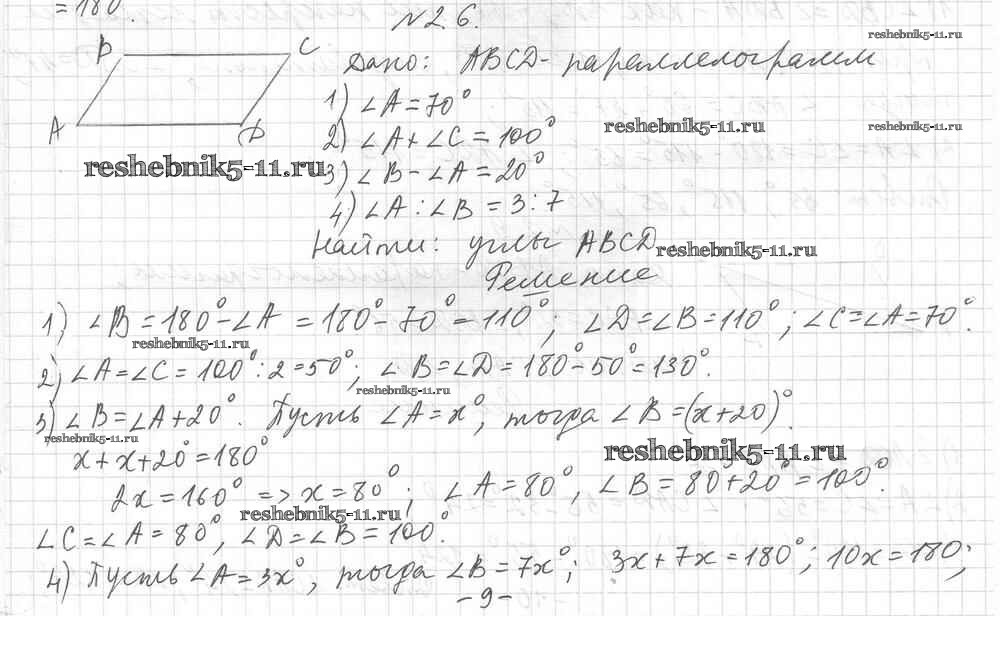 = 180°.
№2.6.
reshebnik5-11.ru
B C
Дано: ABCD - параллелограмм
1) ∠A = 70°
A D
reshebnik5-11.ru
reshebnik5-11.ru
2) ∠A + ∠C = 100°
reshebnik5-11.ru
3) ∠B - ∠A = 20°
4) ∠A : ∠B = 3 : 7
Найти: углы ABCD
reshebnik5-11.ru
Решение
1) ∠B = 180° - ∠A = 180° - 70° = 110°; ∠D = ∠B = 110°; ∠C = ∠A = 70°.
reshebnik5-11.ru
2) ∠A = ∠C = 100° : 2 = 50°; ∠B = ∠D = 180° - 50° = 130°.
reshebnik5-11.ru
3) ∠B = ∠A + 20°. Пусть ∠A = x°, тогда ∠B = (x + 20)°.
reshebnik5-11.ru
x + x + 20 = 180°
reshebnik5-11.ru
2x = 160° => x = 80°; ∠A = 80°, ∠B = 80 + 20° = 100°.
reshebnik5-11.ru
∠C = ∠A = 80°, ∠D = ∠B = 100°.
4) Пусть ∠A = 3x°, тогда ∠B = 7x°; 3x + 7x = 180°; 10x = 180;
- 9 -